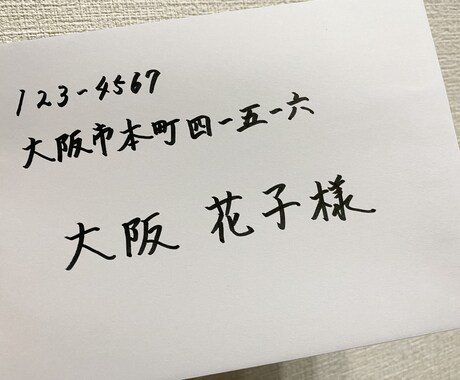 123-4567
大阪市本町四-五-六
大阪 花子様